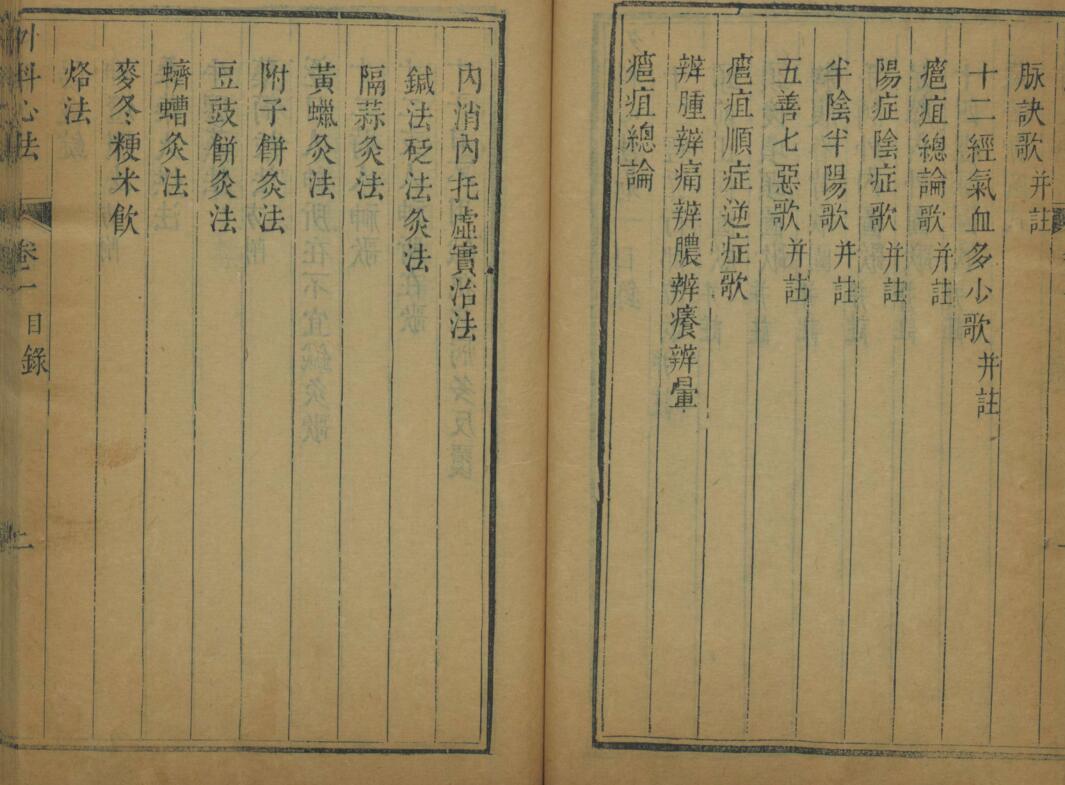 脉訣歌 并註
十二經氣血多少歌 并註
癰疽總論歌 并註
陽症陰症歌 并註
半陰半陽歌 并註
五善七惡歌 并註
癰疽順症逆症歌
辨腫辨痛辨膿辨癢辨暈
癰疽總論
內消內托虛實治法
鍼法砭法灸法
隔蒜灸法
黃蠟灸法
附子餅灸法
豆豉餅灸法
蠐螬灸法
麥冬粳米飲
烙法
外科心法 卷二 目錄 二